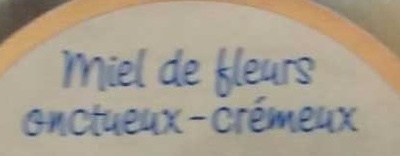 Miel de fleurs
onctueux-crémeux